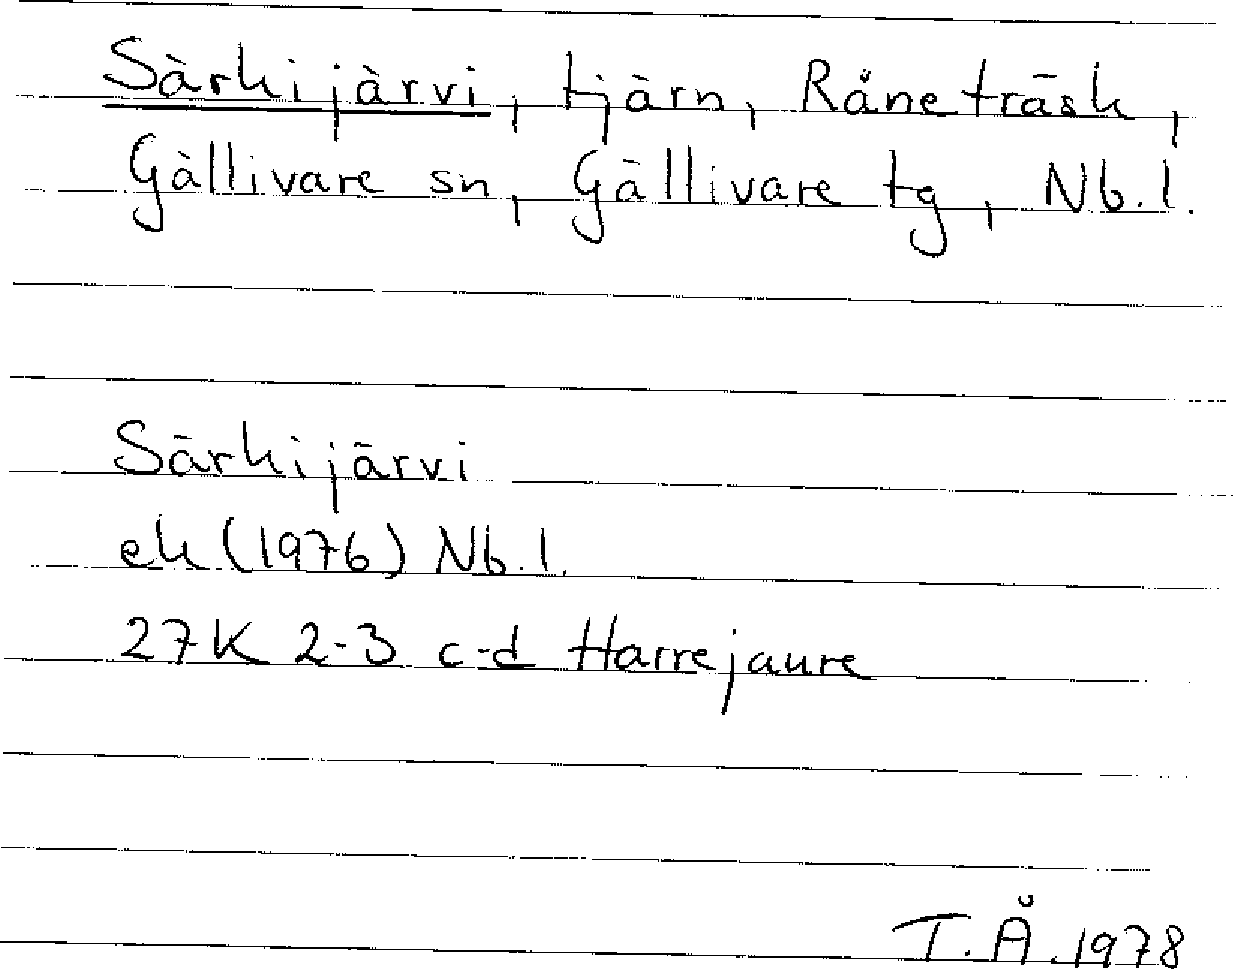 Särkijärvi, tjärn, Råneträsk,
Gällivare sn, Gällivare tg, Nb.l.
Särkijärvi
ek (1976) Nb.l.
27K 2-3 c-d Harrejaure
T.Å.1978